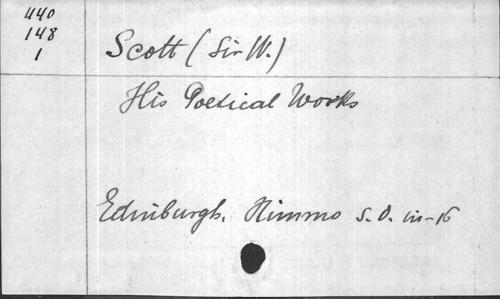 440
148
1
Scott (Sir W.)
His Poetical Works
Edinburgh, Nimmo s.d. in-16